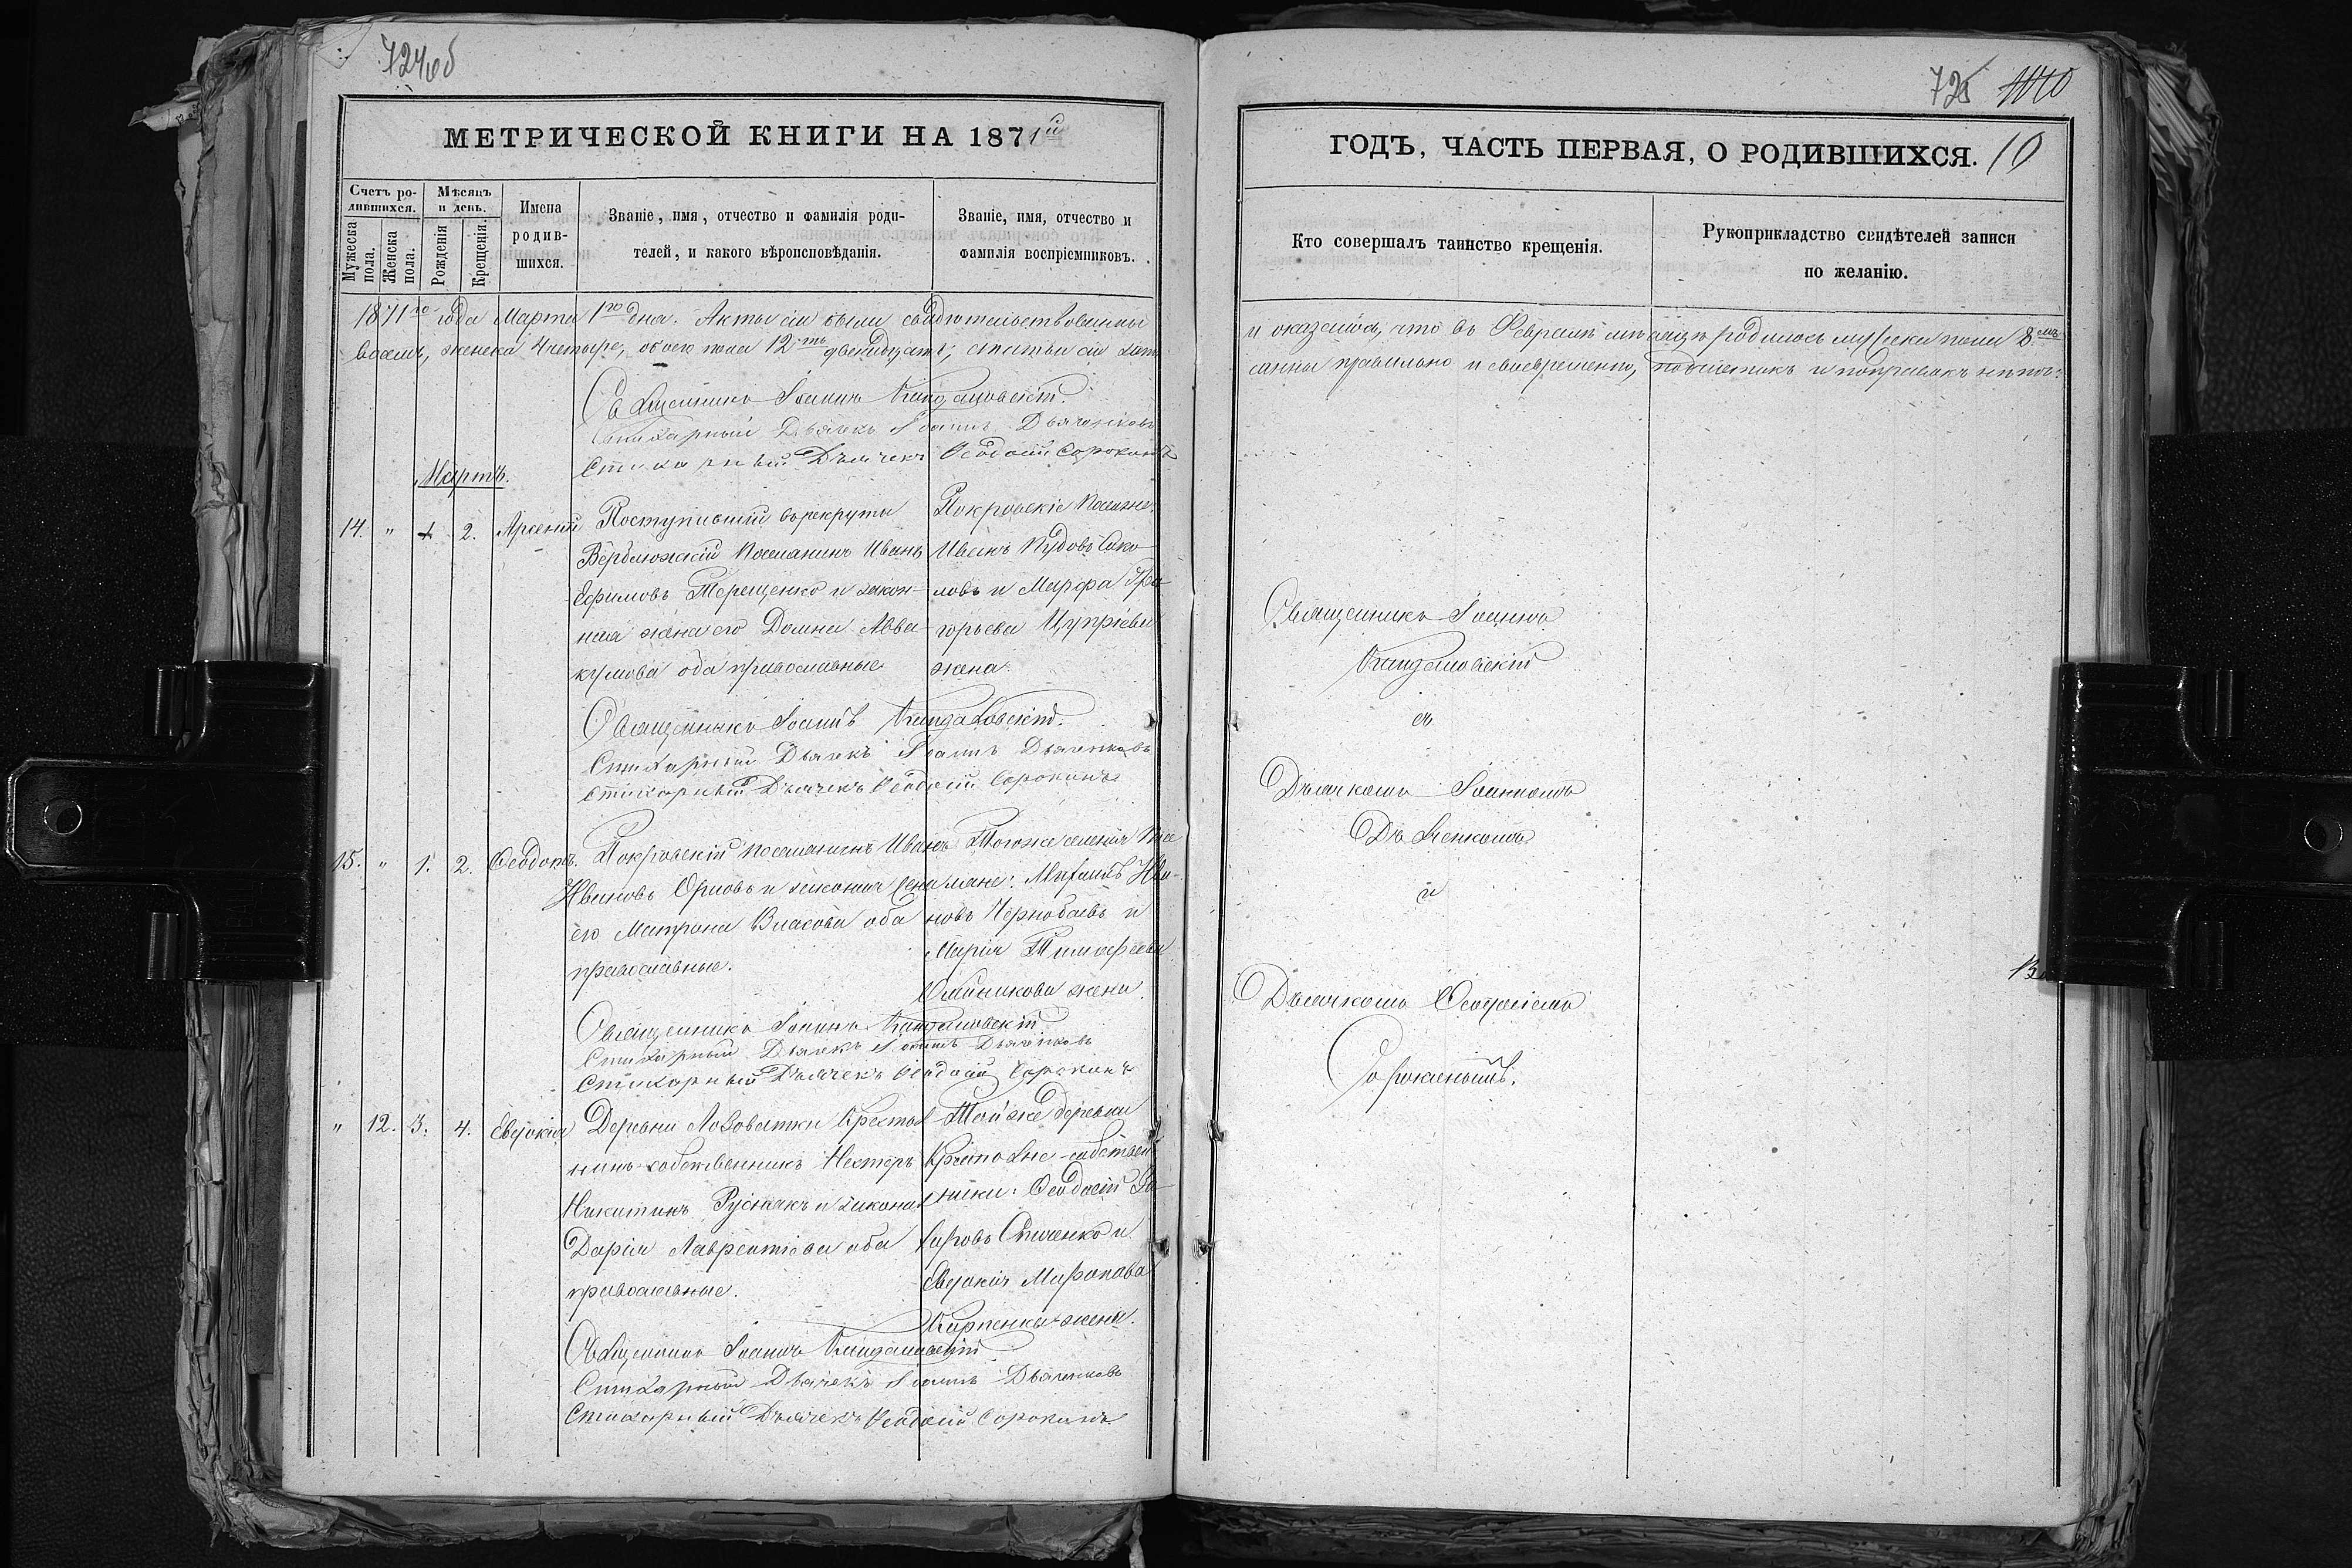 724об
МЕТРИЧЕСКОЙ КНИГИ НА 1871й
Счетъ ро-
дившихся.
Мѣсяцъ
и день.
Мужеска
пола.
Женска
пола.
Рожденія
Крещенія.
Имена
родив-
шихся.
Званіе, имя, отчество и фамилія роди-
телей, и какого вѣроисповѣданія.
Званіе, имя, отчество и
фамилія воспріемниковъ.
1871го года Марта 1го дня. Акты сіи были свидѣтельствованны
восемь, женска четыре, обоего пола 12ть двенадцать; статьи сіи
Священникъ Іоаннъ
Стихарный Дьячекъ Іоаннъ Дьяченковъ
Стихарный Дьячекъ Ѳеодосій Сорокинъ
Мартъ.
14. " 1 2. Арсеній
Поступившій въ рекруты
Верблюжскій поселянинъ Иванъ
Ефимовъ Терещенко и закон-
ная жена его Домна Авва-
кумова оба православные
Покровскіе поселяне:
Иванъ Пудовъ Соко-
ловъ и Марфа Гри-
горьева Цупріева
жена.
Священникъ Іоаннъ
Стихарный Дьячекъ Іоаннъ Дьяченковъ
Стихарный Дьячекъ Ѳеодосій Сорокинъ
15. " 1. 2. Ѳеодотъ.
Покровскій поселянинъ Иванъ
Ивановъ Орловъ и законная жена
его Матрона Власова оба
православные.
Тогоже селенія посе-
ляне: Михаилъ Ива-
новъ Чернобаевъ и
Марія Тимофеева
жена.
Священникъ Іоаннъ
Стихарный Дьячекъ Іоаннъ Дьяченковъ
Стихарный Дьячекъ Ѳеодосій Сорокинъ
" 12. 3. 4. Евдокія
Деревни Лозоватки крестья-
нинъ-собственникъ Несторъ
Никитинъ Руснакъ и законная
Дарія Лаврентіева оба
православные.
Тойже деревни
крестьяне-собствен-
ники: Ѳеодосій За-
харовъ и
Евдокія Миронова
Карпенкова жена.
Священникъ Іоаннъ
Стихарный Дьячекъ Іоаннъ Дьяченковъ
Стихарный Дьячекъ Ѳеодосій Сорокинъ
725
ГОДЪ, ЧАСТЬ ПЕРВАЯ, О РОДИВШИХСЯ. 10
Кто совершалъ таинство крещенія.
Рукоприкладство свидѣтелей записи
по желанію.
и оказалось, что въ Февралѣ мѣсяцѣ родилось мужеска пола 8мь
санны правильно и своевременно, подчистокъ и поправокъ нѣтъ.
Священникъ Іоаннъ
съ
Дьячкомъ Іоанномъ
Дьяченковымъ
и
Дьячкомъ Ѳеодосіемъ
Сорокинымъ.